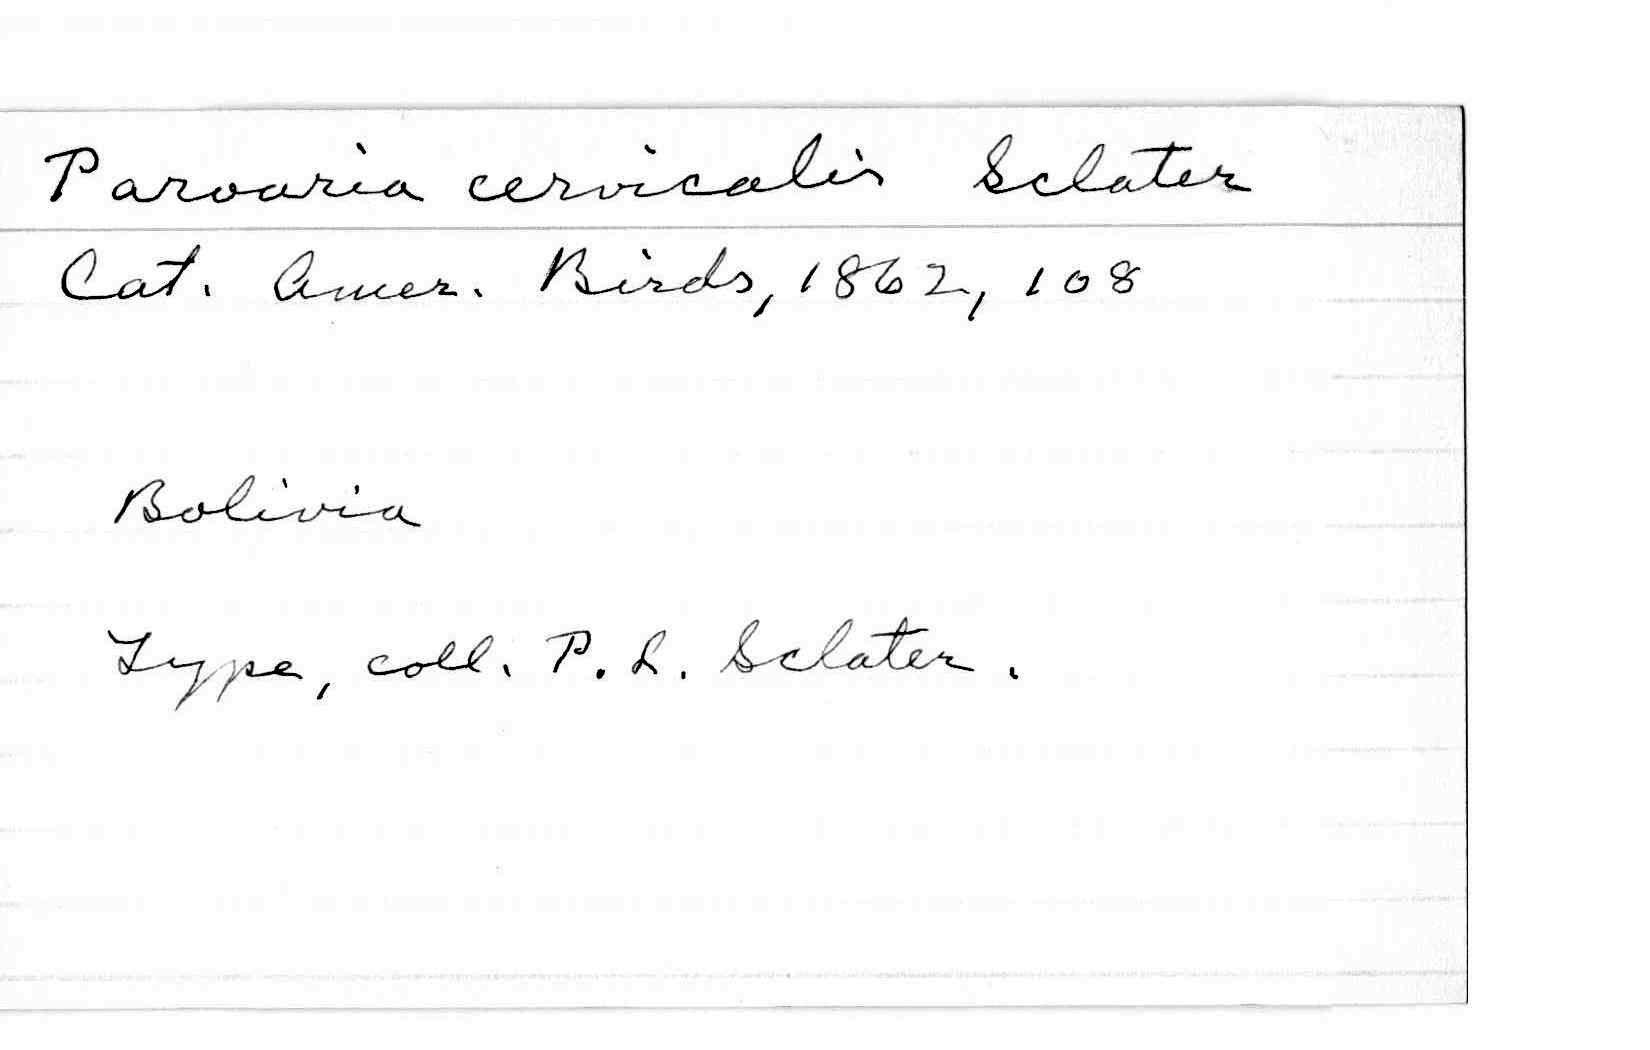 Paroaria cervicalis Sclater
Cat. Amer. Birds, 1862, 108
Bolivia
Type, coll. P. L. Sclater.